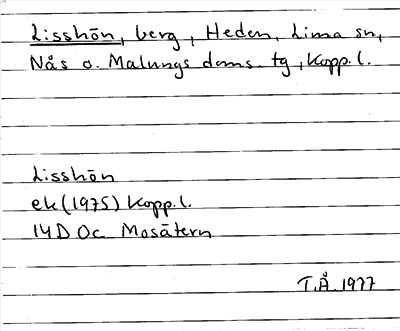 Lisshön, berg, Heden, Lima sn,
Nås o. Malungs doms. tg, Kopp.l.
Lisshön
ek (1975) Kopp.l.
14D 0c Mosätern
T.Å 1977